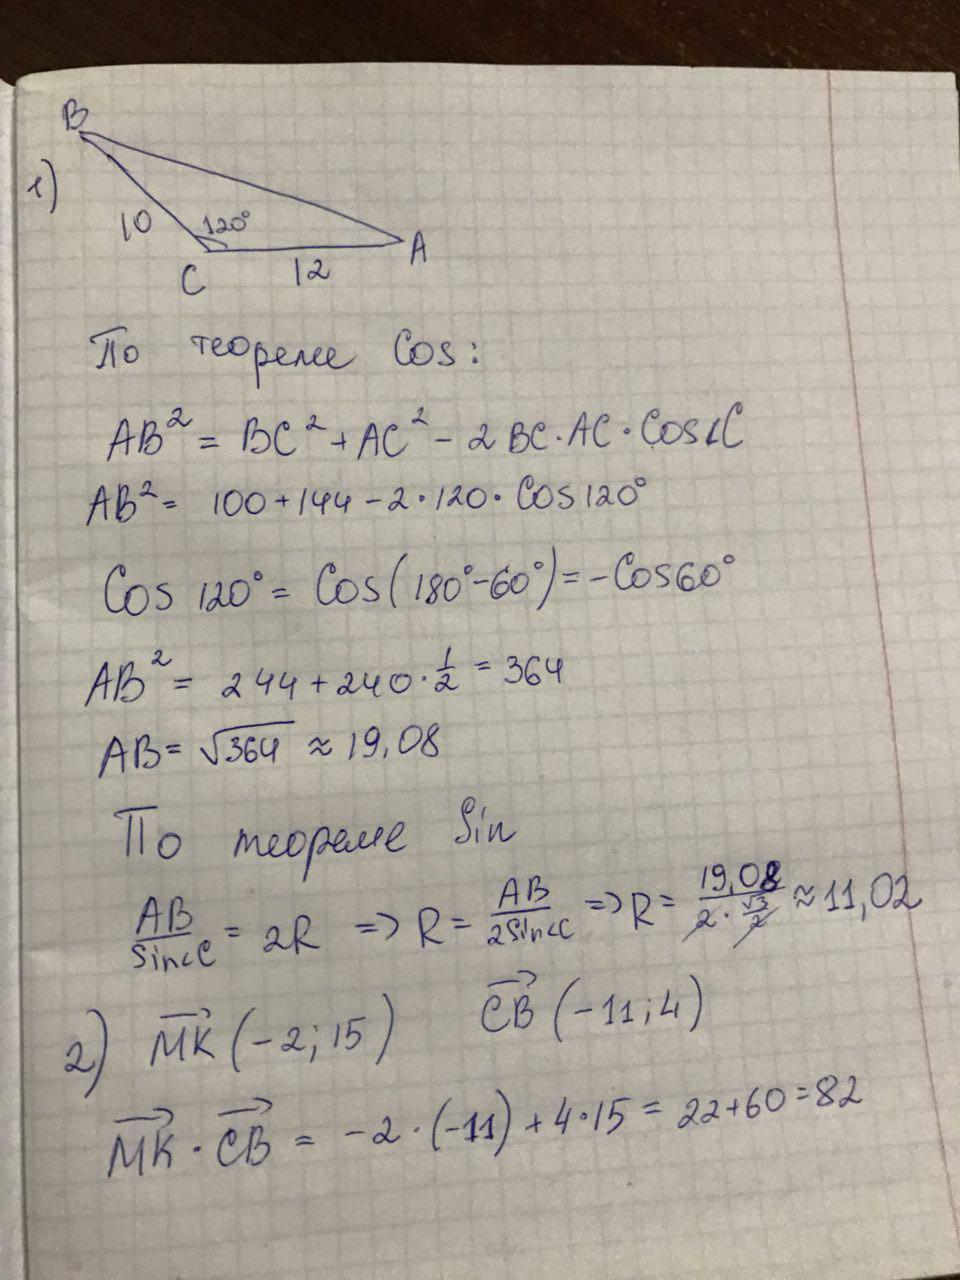 B
1)
10
120°
C
12
A
По теореме Cos:
AB² = BC² + AC² - 2 BC · AC · Cos∠C
AB² = 100 + 144 - 2 · 120 · Cos 120°
Cos 120° = Cos(180° - 60°) = -Cos60°
AB² = 244 + 240 · 1/2 = 364
AB = √364 ≈ 19,08
По теореме Sin
AB/Sin∠C = 2R => R = AB/2Sin∠C => R = 19,08/(2 · √3/2) ≈ 11,02
2) MK→ (-2; 15) CB→ (-11; 4)
MK→ · CB→ = -2 · (-11) + 4 · 15 = 22 + 60 = 82